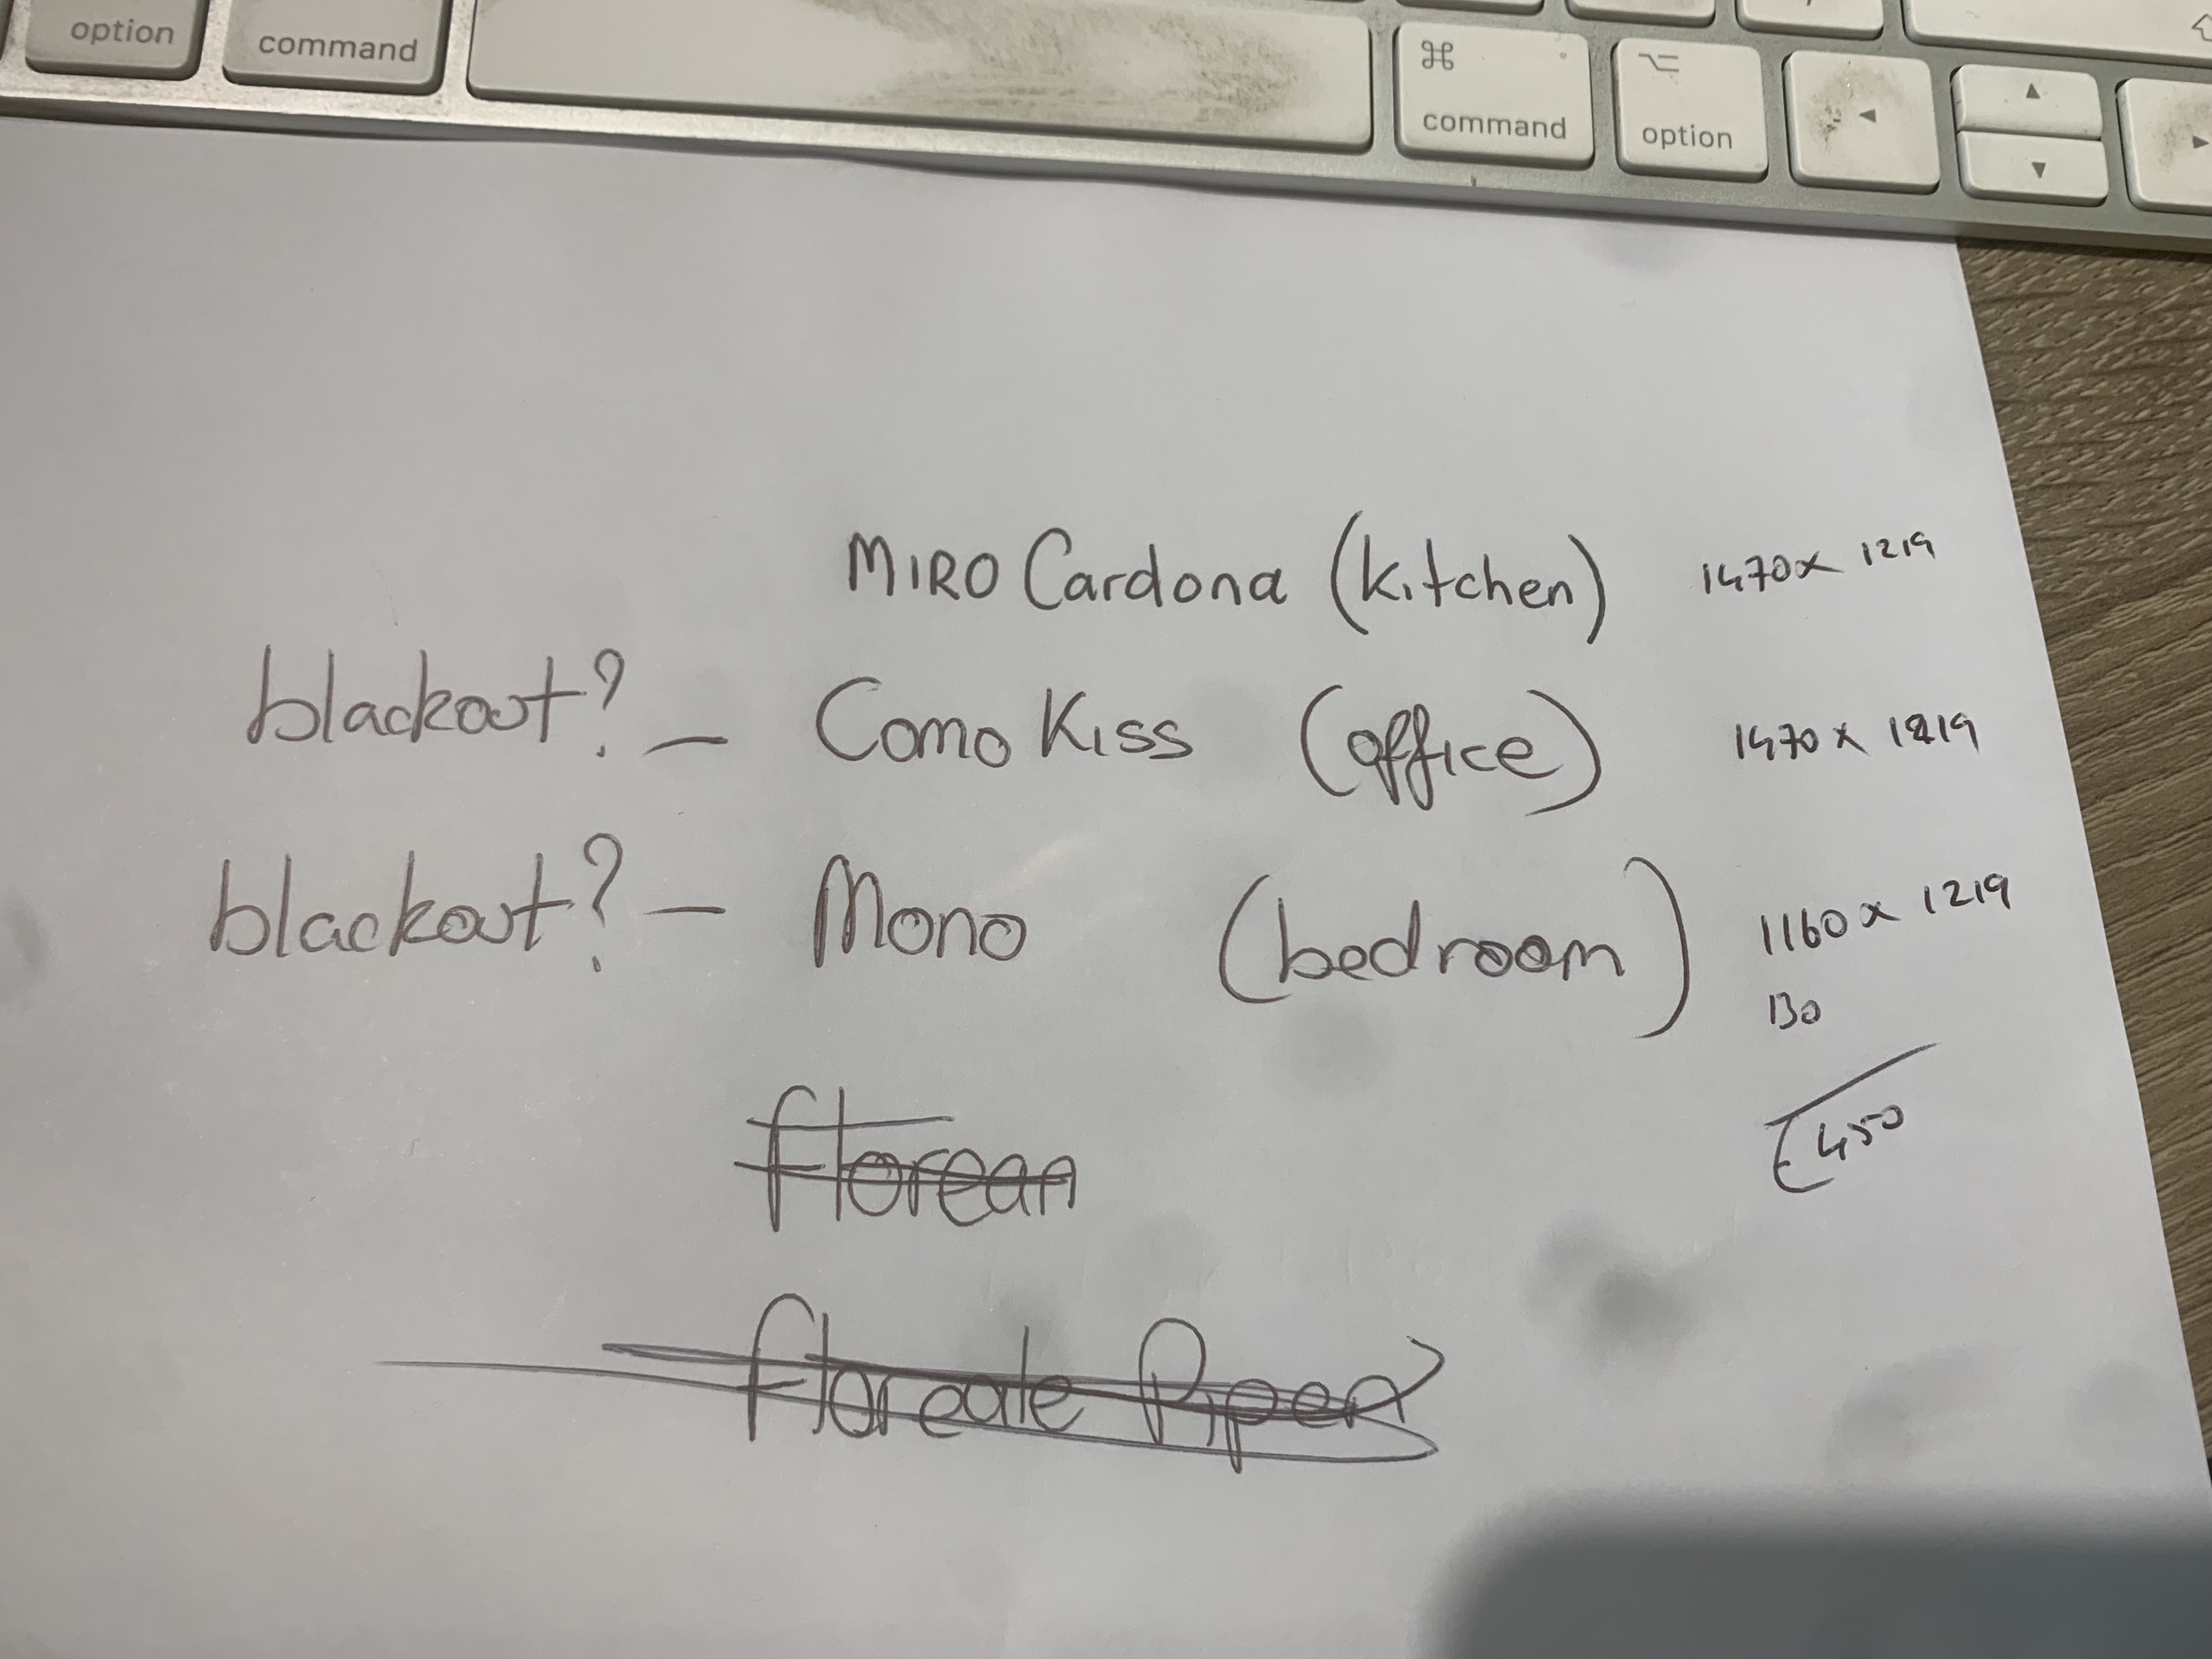 option command ⌘ command option
MIRO Cardona (kitchen) 1470 x 1219
blackout? — Como Kiss (office) 1470 x 1219
blackout? — Mono (bedroom) 1160 x 1219
130
£450
florean
floreale